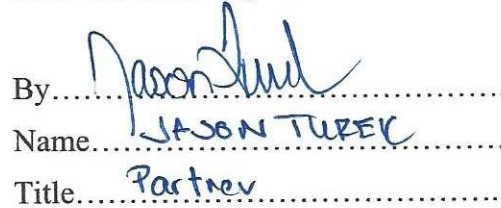 By.....Jason Turek.....
Name.....JASON TUREK.....
Title.....Partner.....